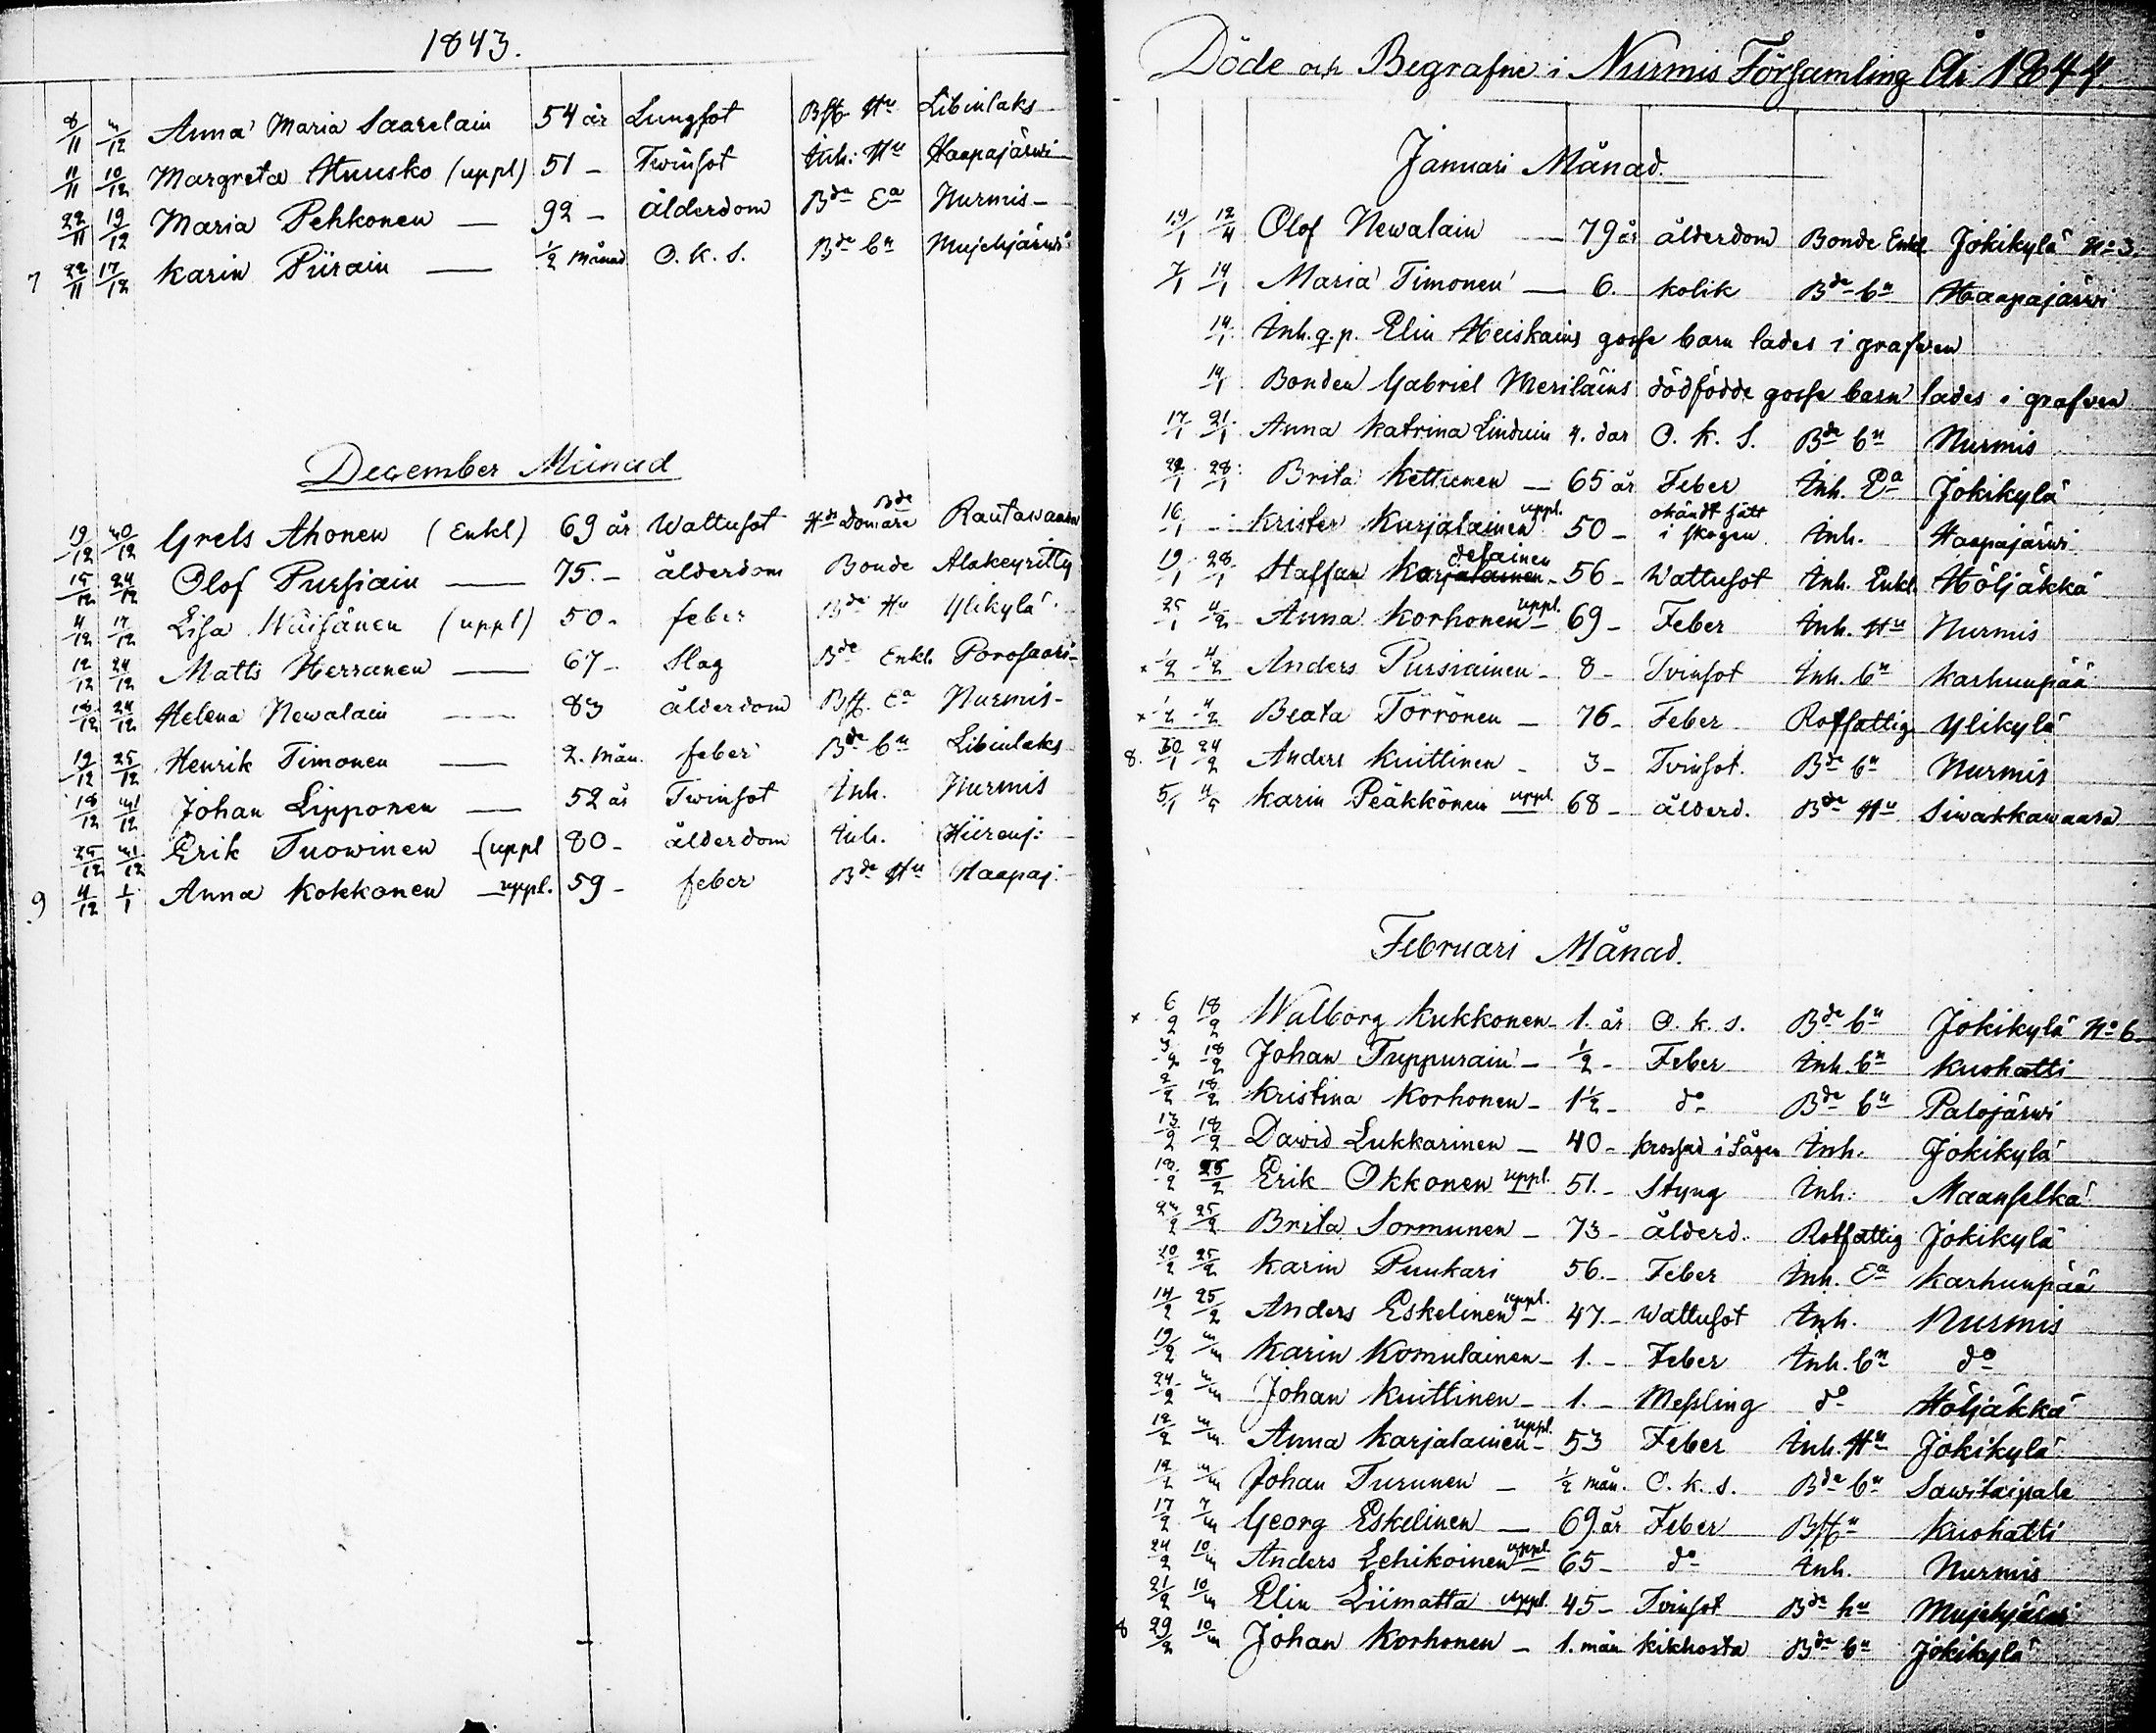 1843.
8/11 3/12 Anna Maria Saarelain 54 år Lungsot Bff. Hu Libinlaks
11/11 10/12 Margreta Huusko (uppl) 51 - Twinsot Inh: Hu Haapajärwi
22/11 19/12 Maria Pehkonen — 92 - ålderdom Bde Ea Nurmis -
7 22/11 17/12 Karin Piirain — 1/2 Månad O. K. S. Bde bn Mujehjärwi
December Månad
19/12 /12 Grels Ahonen (Enkl) 69 år Wattusot Hds Domare Bde Rautawaara
15/12 24/12 Olof Pursiain — 75. - ålderdom Bonde Alakeyritty
4/12 17/12 Lisa Wäisänen (uppl) 50 - feber Bde Hu Ylikylä
12/12 24/12 Matts Herranen — 67 - Slag Bde Enkl. Porosaari -
18/12 24/12 Helena Newalain — 83 ålderdom Bff. Ea Nurmis -
19/12 25/12 Henrik Timonen — 2. Mån. feber Bde bn Libinlaks
18/12 31/12 Johan Lipponen — 52 år Twinsot Inh. Nurmis
25/12 31/12 Erik Tuowinen (uppl 80 - ålderdom Inh. Hiirenj:
9 4/12 1/1 Anna Kokkonen — uppl. 59 - feber Bde Hu Haapaj:
Döde och Begrafne i Nurmis Församling År 1844.
Januari Månad.
/1 12/4 Olof Newalain — 79 år ålderdom Bonde Enkl Jokikylä No 3.
7/1 14/1 Maria Timonen — 6. kolik Bde bn Haapajärwi
14/1 Inh. q. p. Elin Heiskains gosse barn lades i grafven
14/1 Bonden Gabriel Meriläins dödfödde gosse barn lades i grafven
17/1 21/1 Anna Katrina Linduin 4. dar O. K. S. Bde bn Nurmis
22/1 28/1 Brita Kettunen — 65 år Feber Inh. Ea Jokikylä
16/1 - Krister Kurjalainen uppl. 50 - okändt sätt i skogen Inh. Haapajärwi
19/1 28/1 Staffan Karjalainen delainen - 56 - Wattusot Inh. Enkl. Höljäkkä
25/1 4/2 Anna Korhonen uppl. 69 - Feber Inh. Hu Nurmis
x 1/2 4/2 Anders Pursiainen - 8 - Tvinsot Inh. bn Karhunpää
x 1/2 4/2 Beata Törrönen — 76 - Feber Rotfattig Ylikylä
8. 30/1 24/2 Anders Kuittinen - 3 - Tvinsot. Bde bn Nurmis
5/1 Karin Peäkkönen uppl. 68 - ålderd. Bde Hu Siwakkawaara
Februari Månad.
x 6/2 18/2 Walborg Kukkonen - 1. år O. k. s. Bde bn Jokikylä No 6
3/2 18/2 Johan Tuppurain — 1/2 - Feber Inh. bn Kuohatti
2/2 18/2 Kristina Korhonen - 1 1/2 - do Bde bn Palojärwi
13/2 18/2 Dawid Lukkarinen — 40 - krossad i Sågen Inh. Jokikylä
18/2 25/2 Erik Okkonen uppl. 51. - Styng Inh. Maanselkä
/2 25/2 Brita Sormunen — 73 - ålderd. Rotfattig Jokikylä
20/2 25/2 Karin Puukari 56. - Feber Inh. Ea Karhunpää
14/2 25/2 Anders Eskelinen uppl. - 47. - Wattusot Inh. Nurmis
19/2 3/3 Karin Komulainen - 1. - Feber Inh. bn do
24/2 3/3 Johan Kuittinen - 1. - Messling do Höljäkkä
12/2 3/3 Anna Karjalainen uppl. - 53 Feber Inh. Hu Jokikylä
12/2 3/3 Johan Turunen — 1/2 mån. O. k. s. Bde bn Sawitaipale
17/2 7/3 Georg Eskelinen — 69 år Feber Kuohatti
24/2 10/3 Anders Lehikoinen uppl. 65 - do Inh. Nurmis
21/2 10/3 Elin Liimatta uppl. 45 - Tvinsot Bde hu Mujehjärwi
8 29/2 10/3 Johan Korhonen - 1. mån kikhosta Bde bn Jokikylä